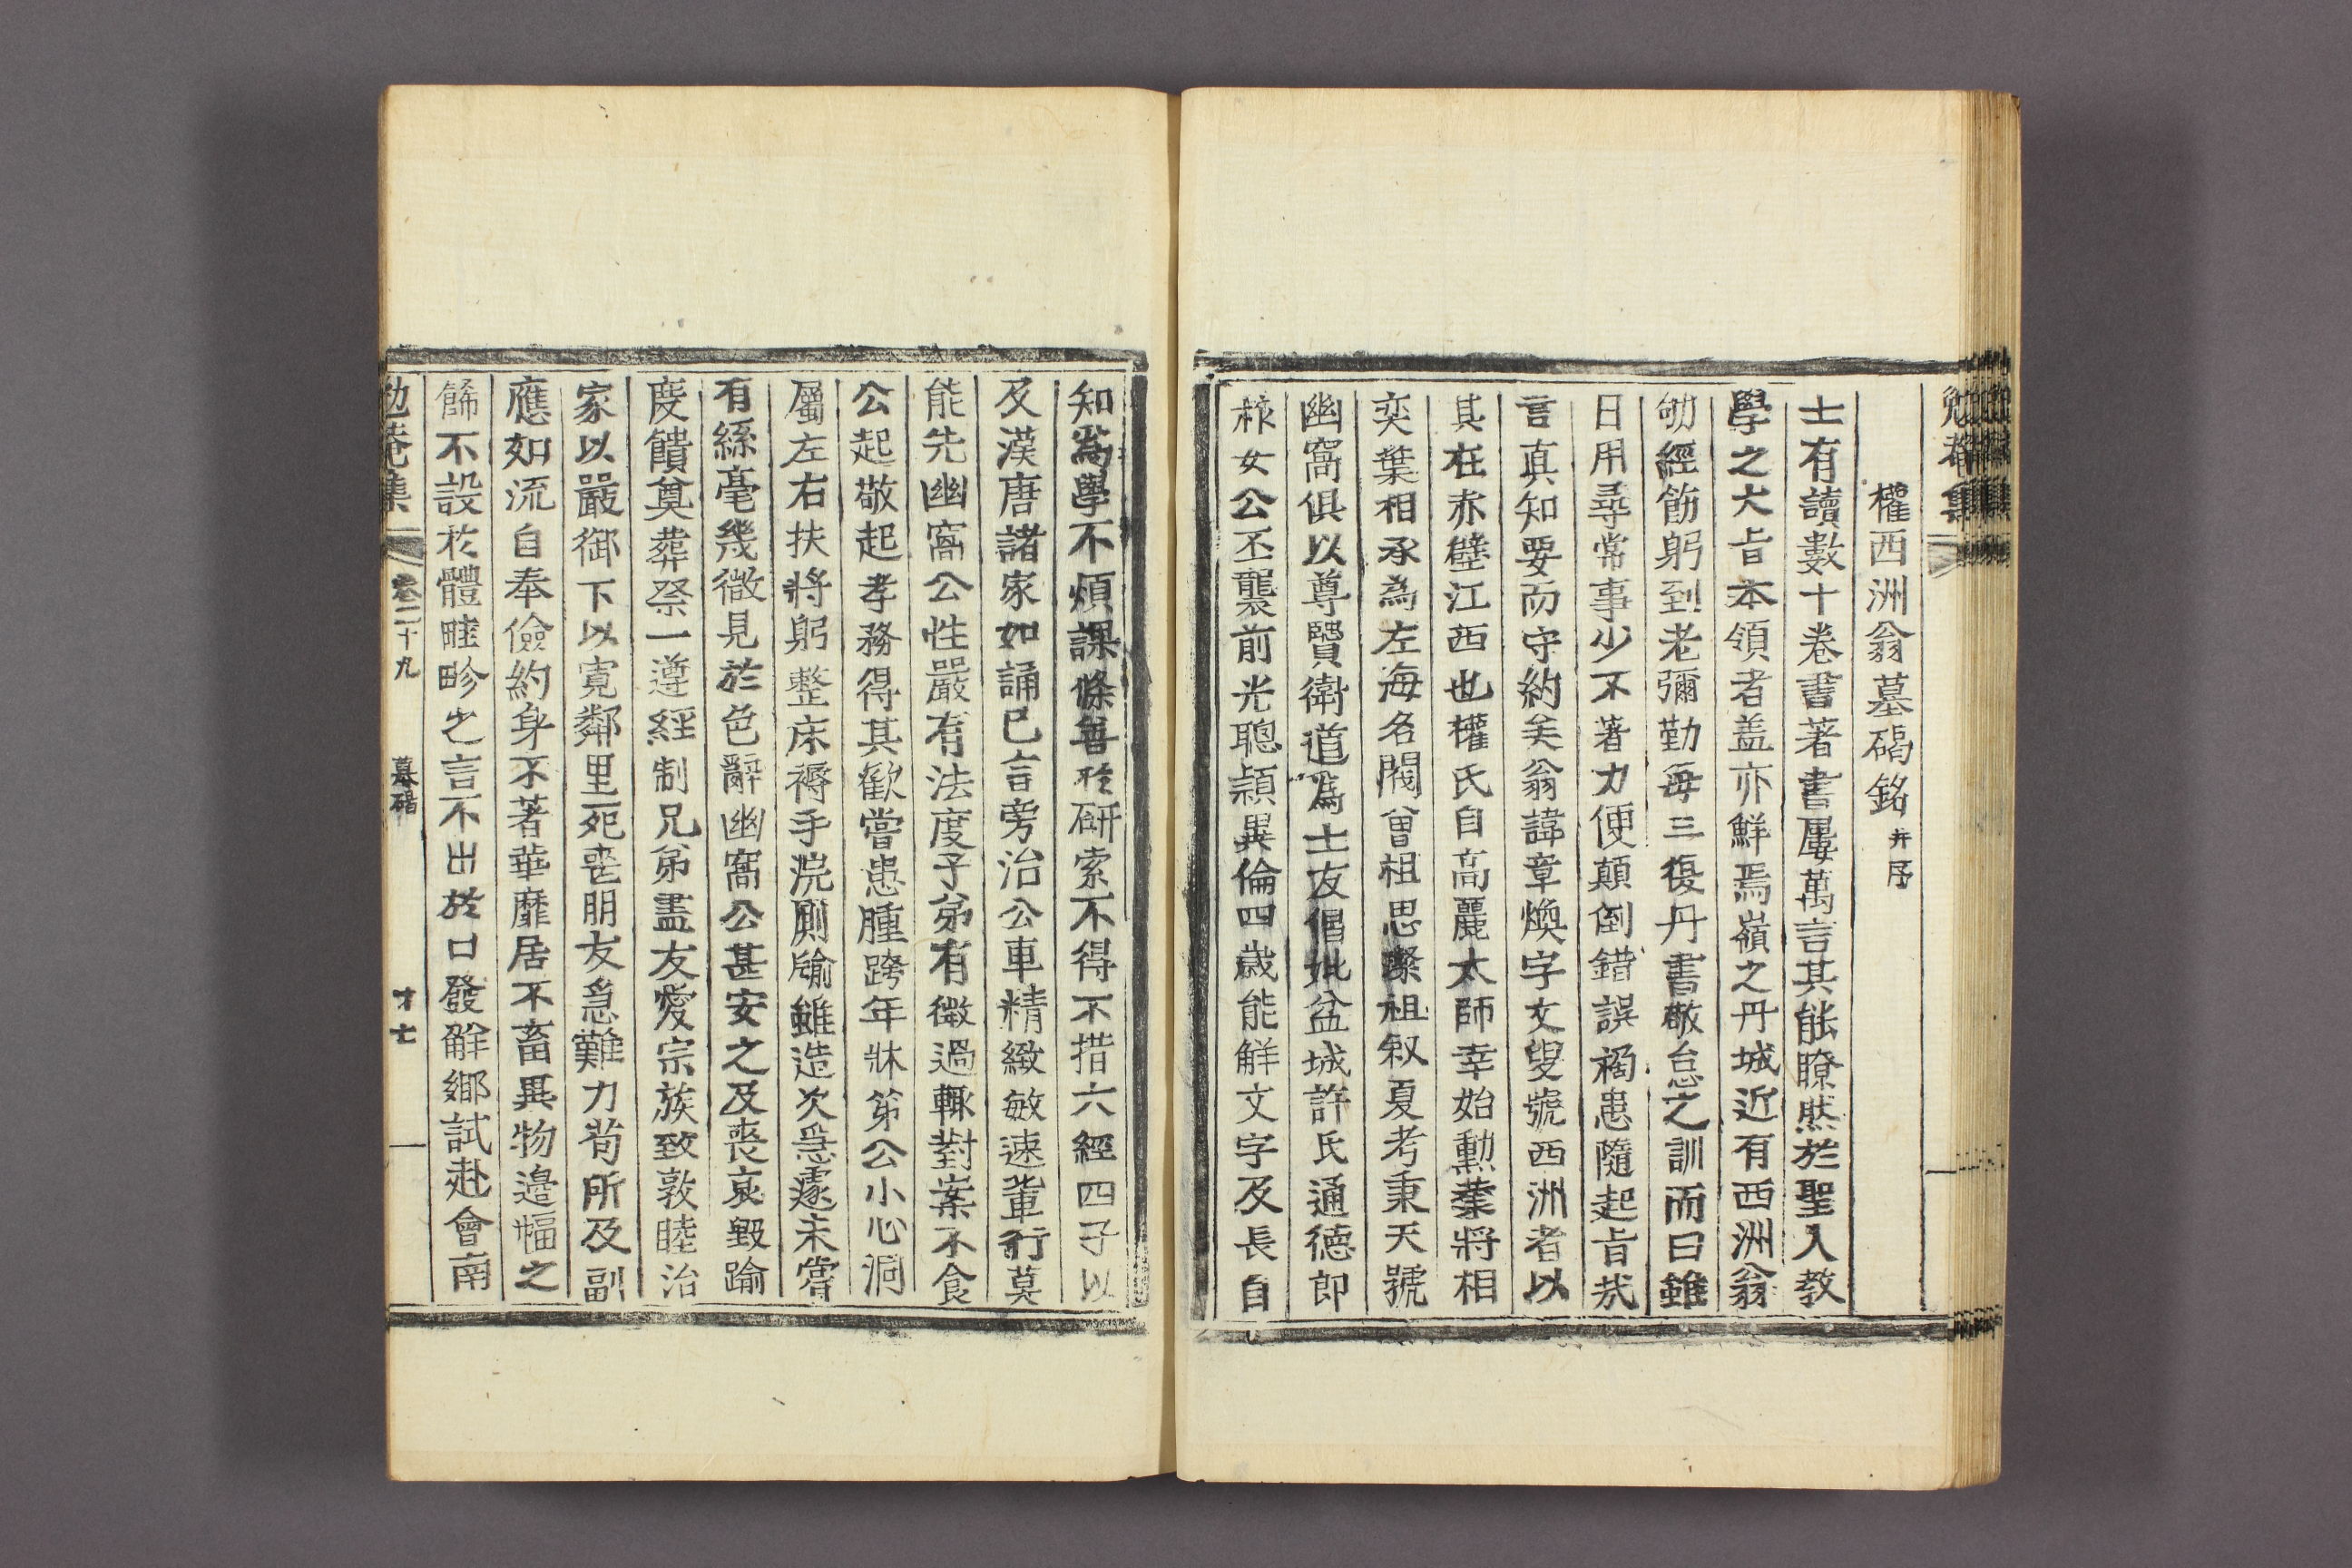 勉菴集
權西洲翁墓碣銘 并序
士有讀數十卷書著書屢萬言其能瞭然於聖人教
學之大旨本領者盖亦鮮焉嶺之丹城近有西洲翁
劬經飭躬到老彌勤每三復丹書敬怠之訓而曰雖
日用尋常事少不著力便顛倒錯誤禍患隨起旨哉
言眞知要而守約矣翁諱章煥字文叟號西洲者以
其在赤壁江西也權氏自高麗太師幸始勳業將相
奕葉相承爲左海名閥曾祖思㯋祖叙夏考秉天號
幽窩俱以尊賢衛道爲士友倡妣盆城許氏通德郎
秾女公丕襲前光聰穎異倫四歲能解文字及長自
知爲學不煩課條善於研索不得不措六經四子以
及漢唐諸家如誦已言旁治公車精緻敏速輩行莫
能先幽窩公性嚴有法度子弟有微過輒對案不食
公起敬起孝務得其歡嘗患腫跨年牀第公小心洞
屬左右扶將躬整床褥手浣厠牏雖造次急遽未嘗
有絲毫幾微見於色辭幽窩公甚安之及喪哀毁踰
度饋奠葬祭一遵經制兄弟盡友愛宗族致敦睦治
家以嚴御下以寬鄰里死喪朋友急難力苟所及副
應如流自奉儉約身不著華靡居不畜異物邊幅之
餙不設於體畦畛之言不出於口發解鄉試赴會南
勉菴集 卷二十九 墓碣 十七